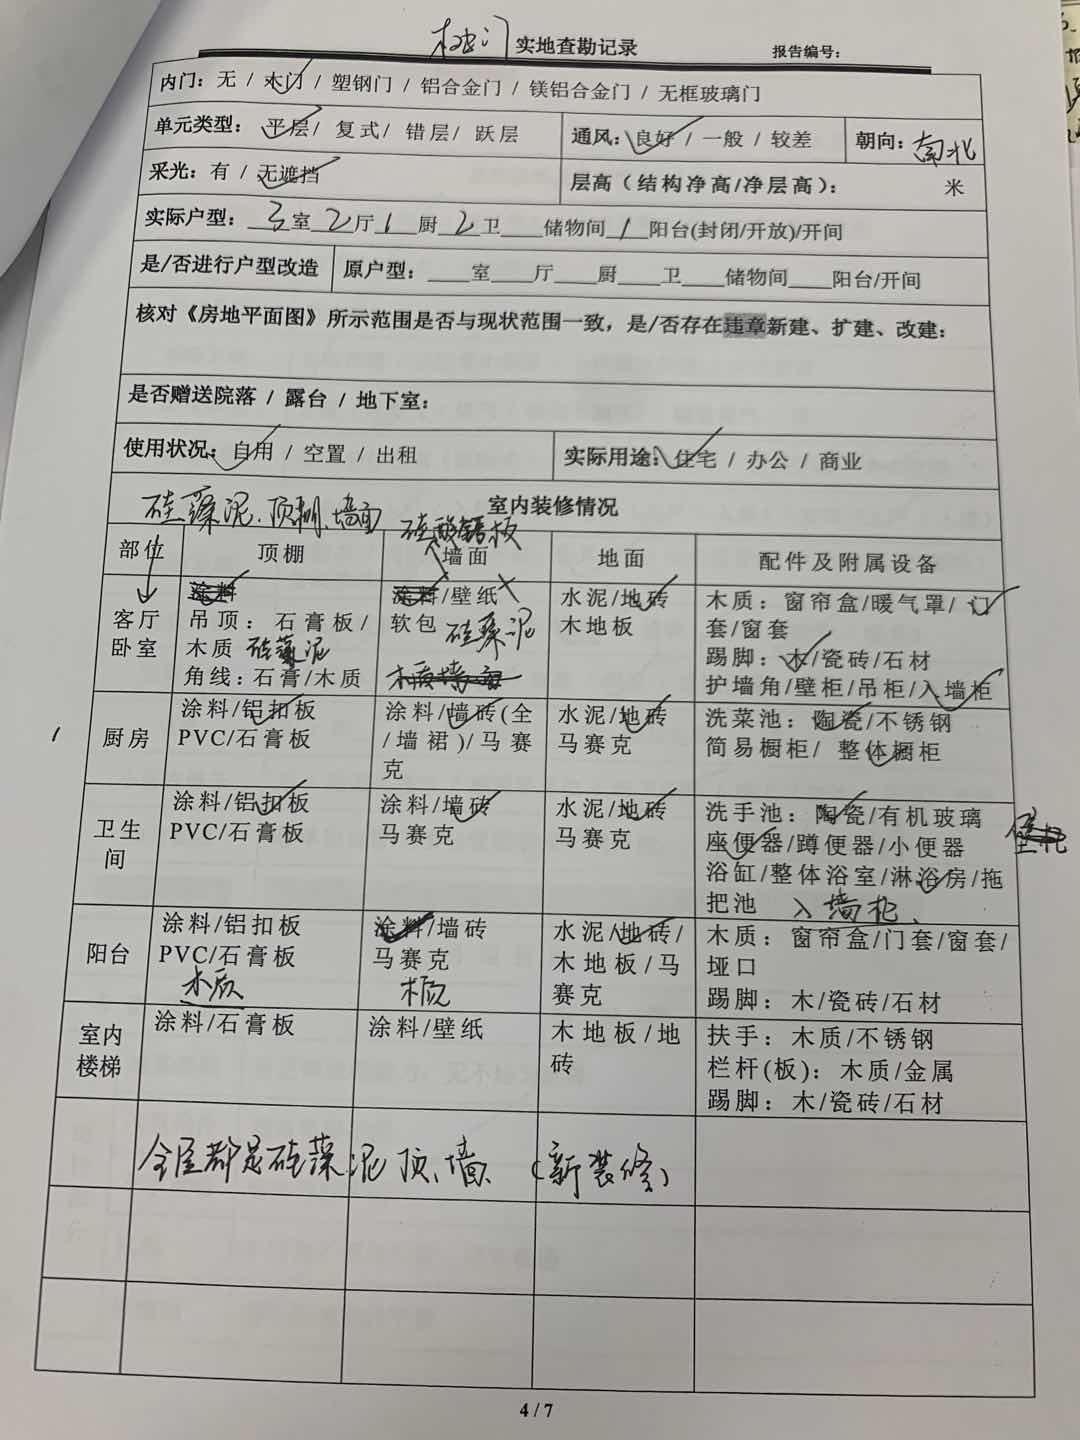 实地查勘记录 报告编号：
内门：无 / 木门 / 塑钢门 / 铝合金门 / 镁铝合金门 / 无框玻璃门
单元类型： 平层/ 复式/ 错层/ 跃层 通风：良好 / 一般 / 较差 朝向：南北
采光：有 / 无遮挡 层高（结构净高/净层高）： 米
实际户型：3室2厅1厨2卫____储物间1阳台(封闭/开放)/开间
是/否进行户型改造 原户型：____室____厅____厨____卫____储物间____阳台/开间
核对《房地平面图》所示范围是否与现状范围一致，是/否存在违章新建、扩建、改建：
是否赠送院落 / 露台 / 地下室：
使用状况：自用 / 空置 / 出租 实际用途：住宅 / 办公 / 商业
室内装修情况
硅藻泥、顶棚、墙面
部位 顶棚 墙面 地面 配件及附属设备
客厅
卧室
涂料
吊顶：石膏板/
木质 硅藻泥
角线：石膏/木质
涂料/壁纸
软包 硅藻泥
水泥/地砖
木地板
木质：窗帘盒/暖气罩/门
套/窗套
踢脚：木/瓷砖/石材
护墙角/壁柜/吊柜/入墙柜
厨房
涂料/铝扣板
PVC/石膏板
涂料/墙砖(全
/墙裙)/马赛
克
水泥/地砖
马赛克
洗菜池：陶瓷/不锈钢
简易橱柜/ 整体橱柜
卫生
间
涂料/铝扣板
PVC/石膏板
涂料/墙砖
马赛克
水泥/地砖
马赛克
洗手池：陶瓷/有机玻璃
座便器/蹲便器/小便器
浴缸/整体浴室/淋浴房/拖
把池 入墙柜、
阳台
涂料/铝扣板
PVC/石膏板
木质
涂料/墙砖
马赛克
木质
水泥/地砖/
木地板/马
赛克
木质：窗帘盒/门套/窗套/
垭口
踢脚：木/瓷砖/石材
室内
楼梯
涂料/石膏板
涂料/壁纸
木地板/地
砖
扶手：木质/不锈钢
栏杆(板)：木质/金属
踢脚：木/瓷砖/石材
全屋都是硅藻泥顶、墙、（新装修）
4 / 7